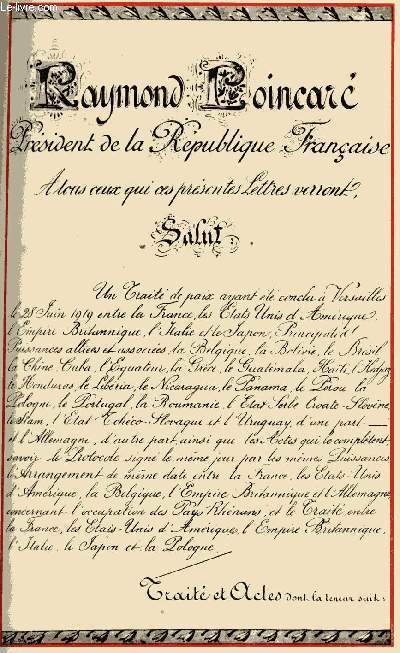 Le-livre.com
Raymond Poincaré
Président de la République Française
A tous ceux qui ces présentes Lettres verront,
Salut :
Un Traité de paix ayant été conclu à Versailles
le 28 Juin 1919 entre la France, les Etats Unis d'Amérique
l'Empire Britannique, l'Italie et le Japon, Principales
Puissances alliées et associées, la Belgique, la Bolivie, le Brésil
la Chine, Cuba, l'Equateur, la Grèce, le Guatemala, Haïti, l'Hedjaz
le Honduras, le Libéria, le Nicaragua, le Panama, le Pérou la
Pologne, le Portugal, la Roumanie, l'Etat Serbe Croate-Slovène,
le Siam, l'Etat Tchéco-Slovaque et l'Uruguay, d'une part
et l'Allemagne, d'autre part ainsi que les Actes qui le complètent
savoir le Protocole signé le même jour par les mêmes Puissances,
l'Arrangement de même date entre la France, les Etats-Unis
d'Amérique, la Belgique, l'Empire Britannique et l'Allemagne
concernant l'occupation des Pays Rhénans, et le Traité entre
la France, les Etats-Unis d'Amérique, l'Empire Britannique,
l'Italie, le Japon et la Pologne,
Traité et Actes dont la teneur suit :